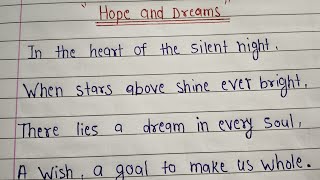 " Hope and Dreams "
In the heart of the silent night.
When stars above shine ever bright.
There lies a dream in every soul,
A wish, a goal to make us whole.